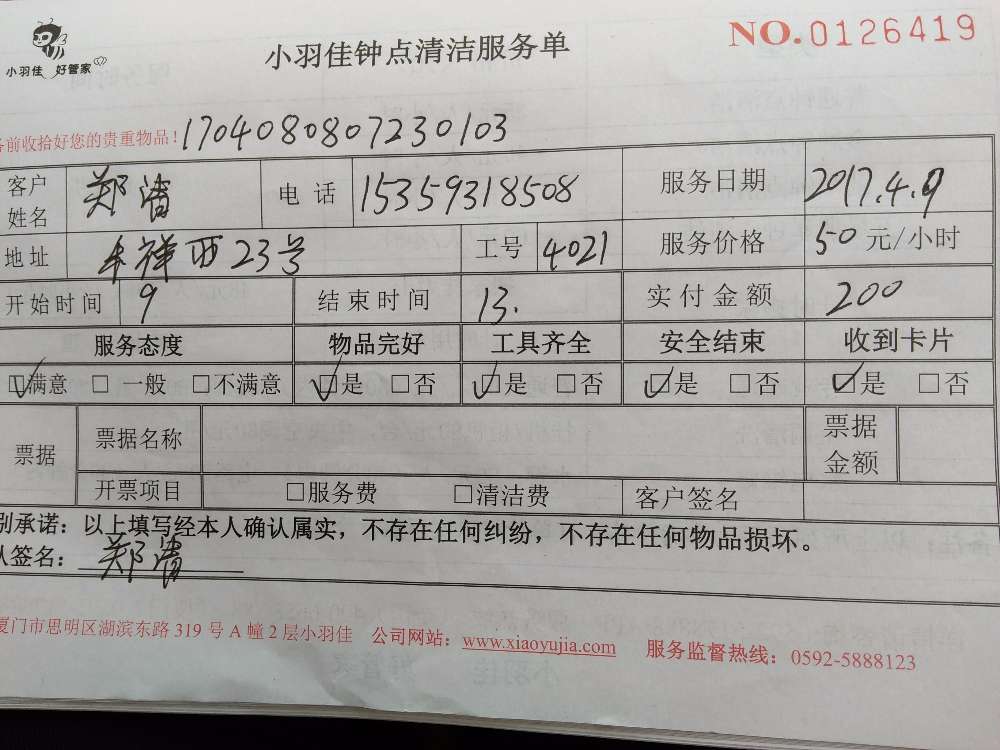 小羽佳 好管家
小羽佳钟点清洁服务单
NO.0126419
前收拾好您的贵重物品！
1704080807230103
客户姓名 郑清 电话 15359318508 服务日期 2017.4.9
地址 祥西23号 工号 4021 服务价格 50 元/小时
开始时间 9 结束时间 13. 实付金额 200
服务态度 物品完好 工具齐全 安全结束 收到卡片
☑满意 □一般 □不满意 ☑是 □否 ☑是 □否 ☑是 □否 ☑是 □否
票据 票据名称 票据金额
开票项目 □服务费 □清洁费 客户签名
别承诺：以上填写经本人确认属实，不存在任何纠纷，不存在任何物品损坏。
签名：郑清
厦门市思明区湖滨东路 319 号 A 幢 2 层小羽佳 公司网站：www.xiaoyujia.com 服务监督热线：0592-5888123